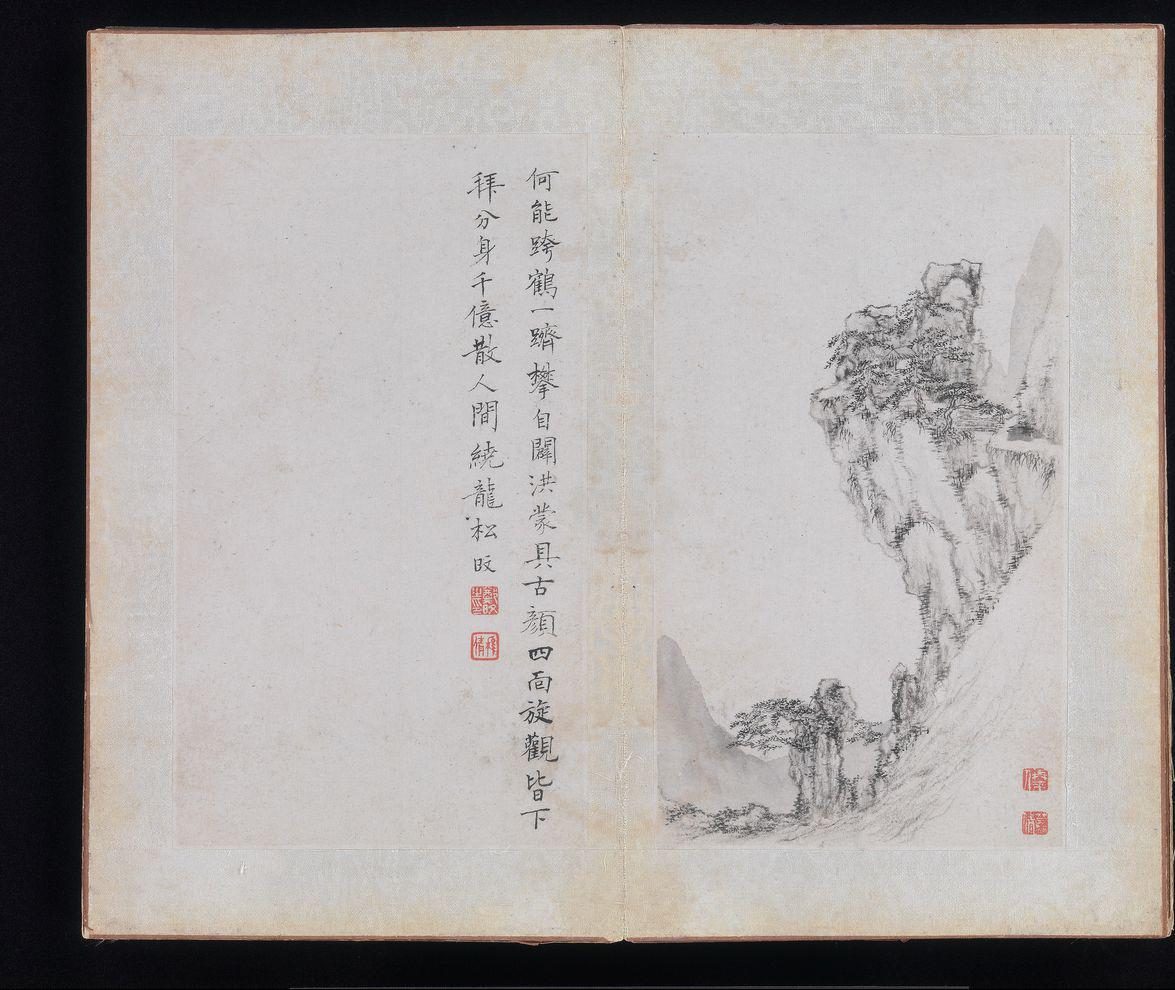 何能跨鶴一躋攀自闢洪蒙具古顔四面旋觀皆下
拜分身千億散人間繞龍松旼
鄭旼